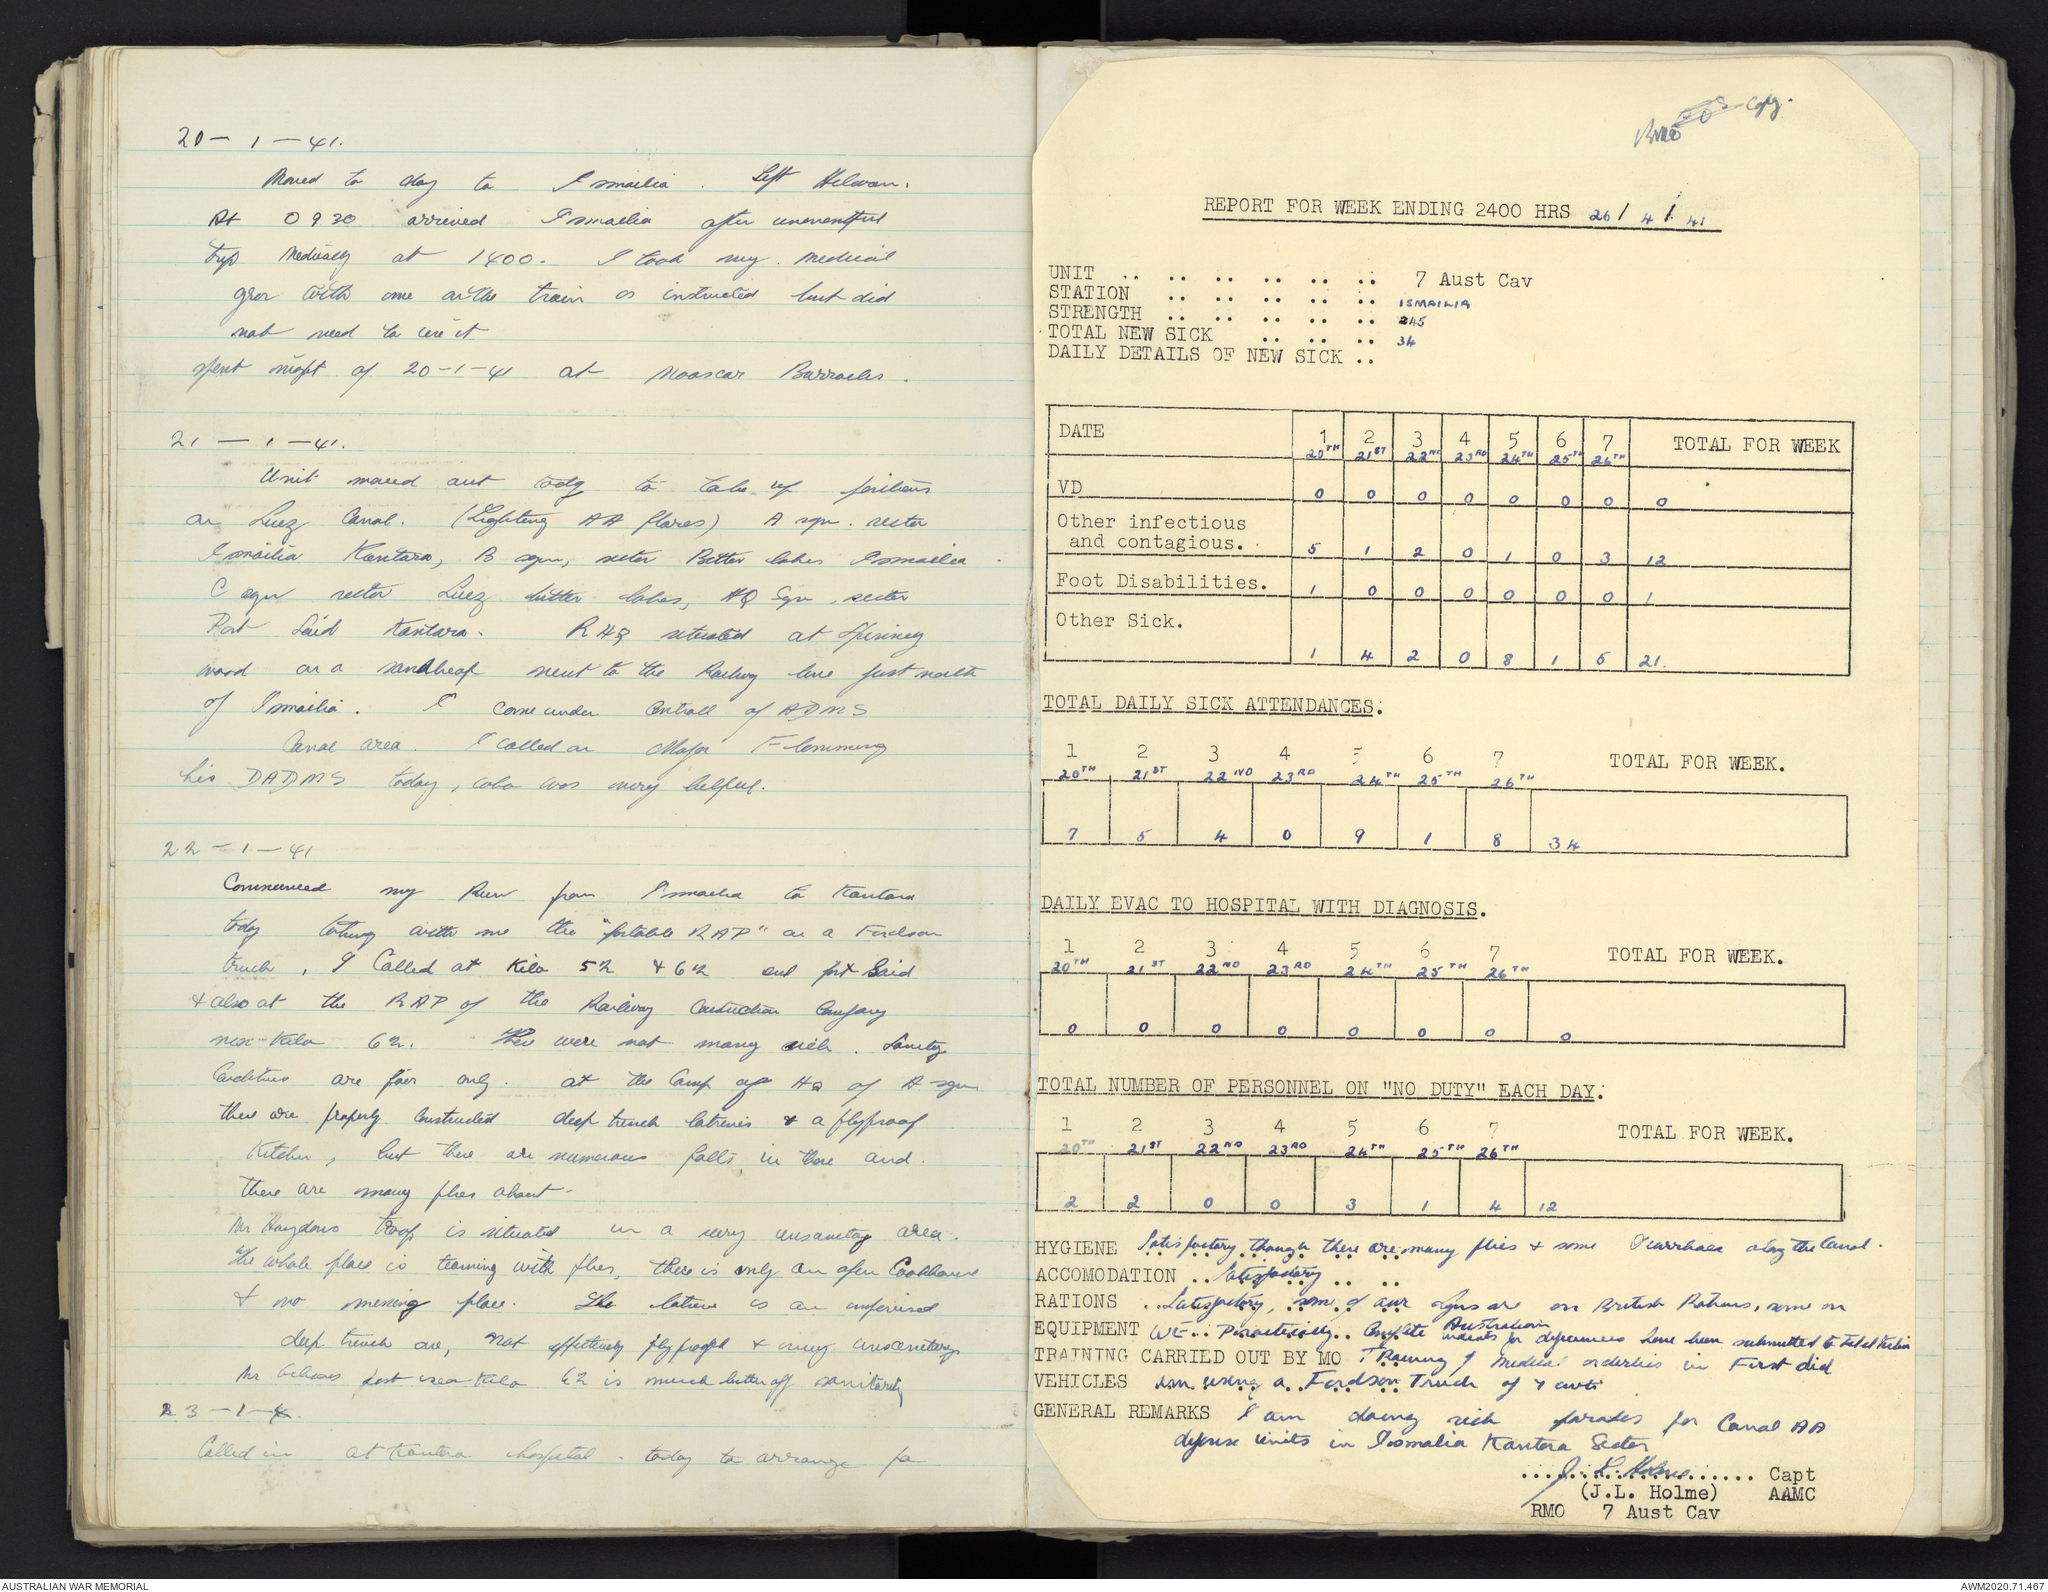 20 - 1 - 41.
Moved to day to Ismailia. Left Helwan.
At 0930 arrived Ismailia after uneventful
trip medically at 1400. I took my medical
gear with me on the train as instructed but did
not need to use it
spent night of 20-1-41 at Moascar Barracks.
21 - 1 - 41.
Unit moved out today to take up positions
on Suez Canal. (Lighting AA flares) A sqn. sector
Ismailia Kantara, B sqn, sector Bitter lakes Ismailia.
C sqn sector Suez bitter lakes, HQ Sqn, sector
Port Said Kantara. RHQ situated at Spinney
wood on a sandheap next to the Railway line just north
of Ismailia. I come under Controll of ADMS
Canal area. I called on Major Flemming
his DADMS today, who was very helpful.
22 - 1 - 41
Commenced my Run from Ismailia to Kantara
today taking with me the "portable RAP" on a Fordson
truck, I Called at Kilo 52 & 62 and port Said
& also at the RAP of the Railway Construction Company
near Kilo 62. There were not many sick. Sanitary
Conditions are fair only. at the Camp of HQ of A sqn
there are properly constructed deep trench latrines & a flyproof
Kitchen, but there are numerous faults in these and
there are many flies about.
Mr Haydons troop is situated in a very unsanitary area.
The whole place is teaming with flies, there is only an open Cookhouse
& no messing place. The latrine is an improvised
deep trench one, not effectively flyproofed & very unsanitary.
Mr post near Kilo 62 is much better off sanitarily
23 - 1 - 4.
Called in at Kantara hospital today to arrange for
RMO's Copy.
REPORT FOR WEEK ENDING 2400 HRS 26/4/41
UNIT .. .. .. .. .. .. 7 Aust Cav
STATION .. .. .. .. .. ISMAILIA
STRENGTH .. .. .. .. .. 245
TOTAL NEW SICK .. .. .. 34
DAILY DETAILS OF NEW SICK ..
DATE 1 2 3 4 5 6 7 TOTAL FOR WEEK
20TH 21ST 22ND 23RD 24TH 25TH 26TH
VD 0 0 0 0 0 0 0 0
Other infectious
and contagious. 5 1 2 0 1 0 3 12
Foot Disabilities. 1 0 0 0 0 0 0 1
Other Sick.
1 4 2 0 8 1 5 21.
TOTAL DAILY SICK ATTENDANCES.
1 2 3 4 5 6 7 TOTAL FOR WEEK.
20TH 21ST 22ND 23RD 24TH 25TH 26TH
7 5 4 0 9 1 8 34
DAILY EVAC TO HOSPITAL WITH DIAGNOSIS.
1 2 3 4 5 6 7 TOTAL FOR WEEK.
20TH 21ST 22ND 23RD 24TH 25TH 26TH
0 0 0 0 0 0 0 0
TOTAL NUMBER OF PERSONNEL ON "NO DUTY" EACH DAY.
1 2 3 4 5 6 7 TOTAL FOR WEEK.
20TH 21ST 22ND 23RD 24TH 25TH 26TH
2 2 0 0 3 1 4 12
HYGIENE Satisfactory though there are many flies & some Diarrhoea along the Canal.
ACCOMODATION .. Satisfactory .. ..
RATIONS .. Satisfactory, some of our sqns are on British Rations, some on
Australian
EQUIPMENT WE .. Practically Complete indents for deficiencies have been submitted to
TRAINING CARRIED OUT BY MO Training of medical orderlies in First Aid
VEHICLES am using a Fordson Truck of 7 cwt
GENERAL REMARKS I am doing sick parades for Canal AA
defense units in Ismalia Kantara Sector
J. L. Holme Capt
(J.L. Holme) AAMC
RMO 7 Aust Cav
AUSTRALIAN WAR MEMORIAL
AWM2020.71.467